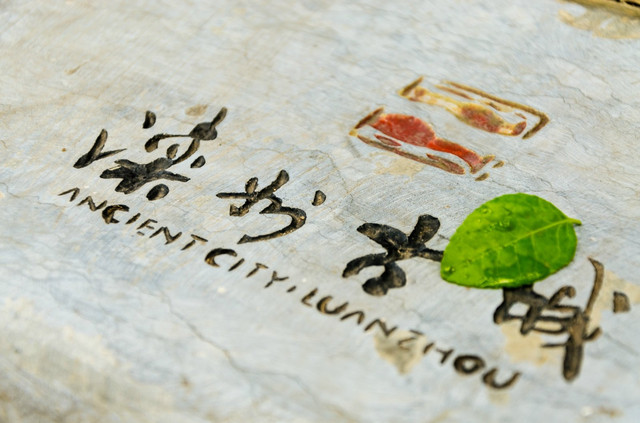 滦州古城
ANCIENT CITY,LUANZHOU